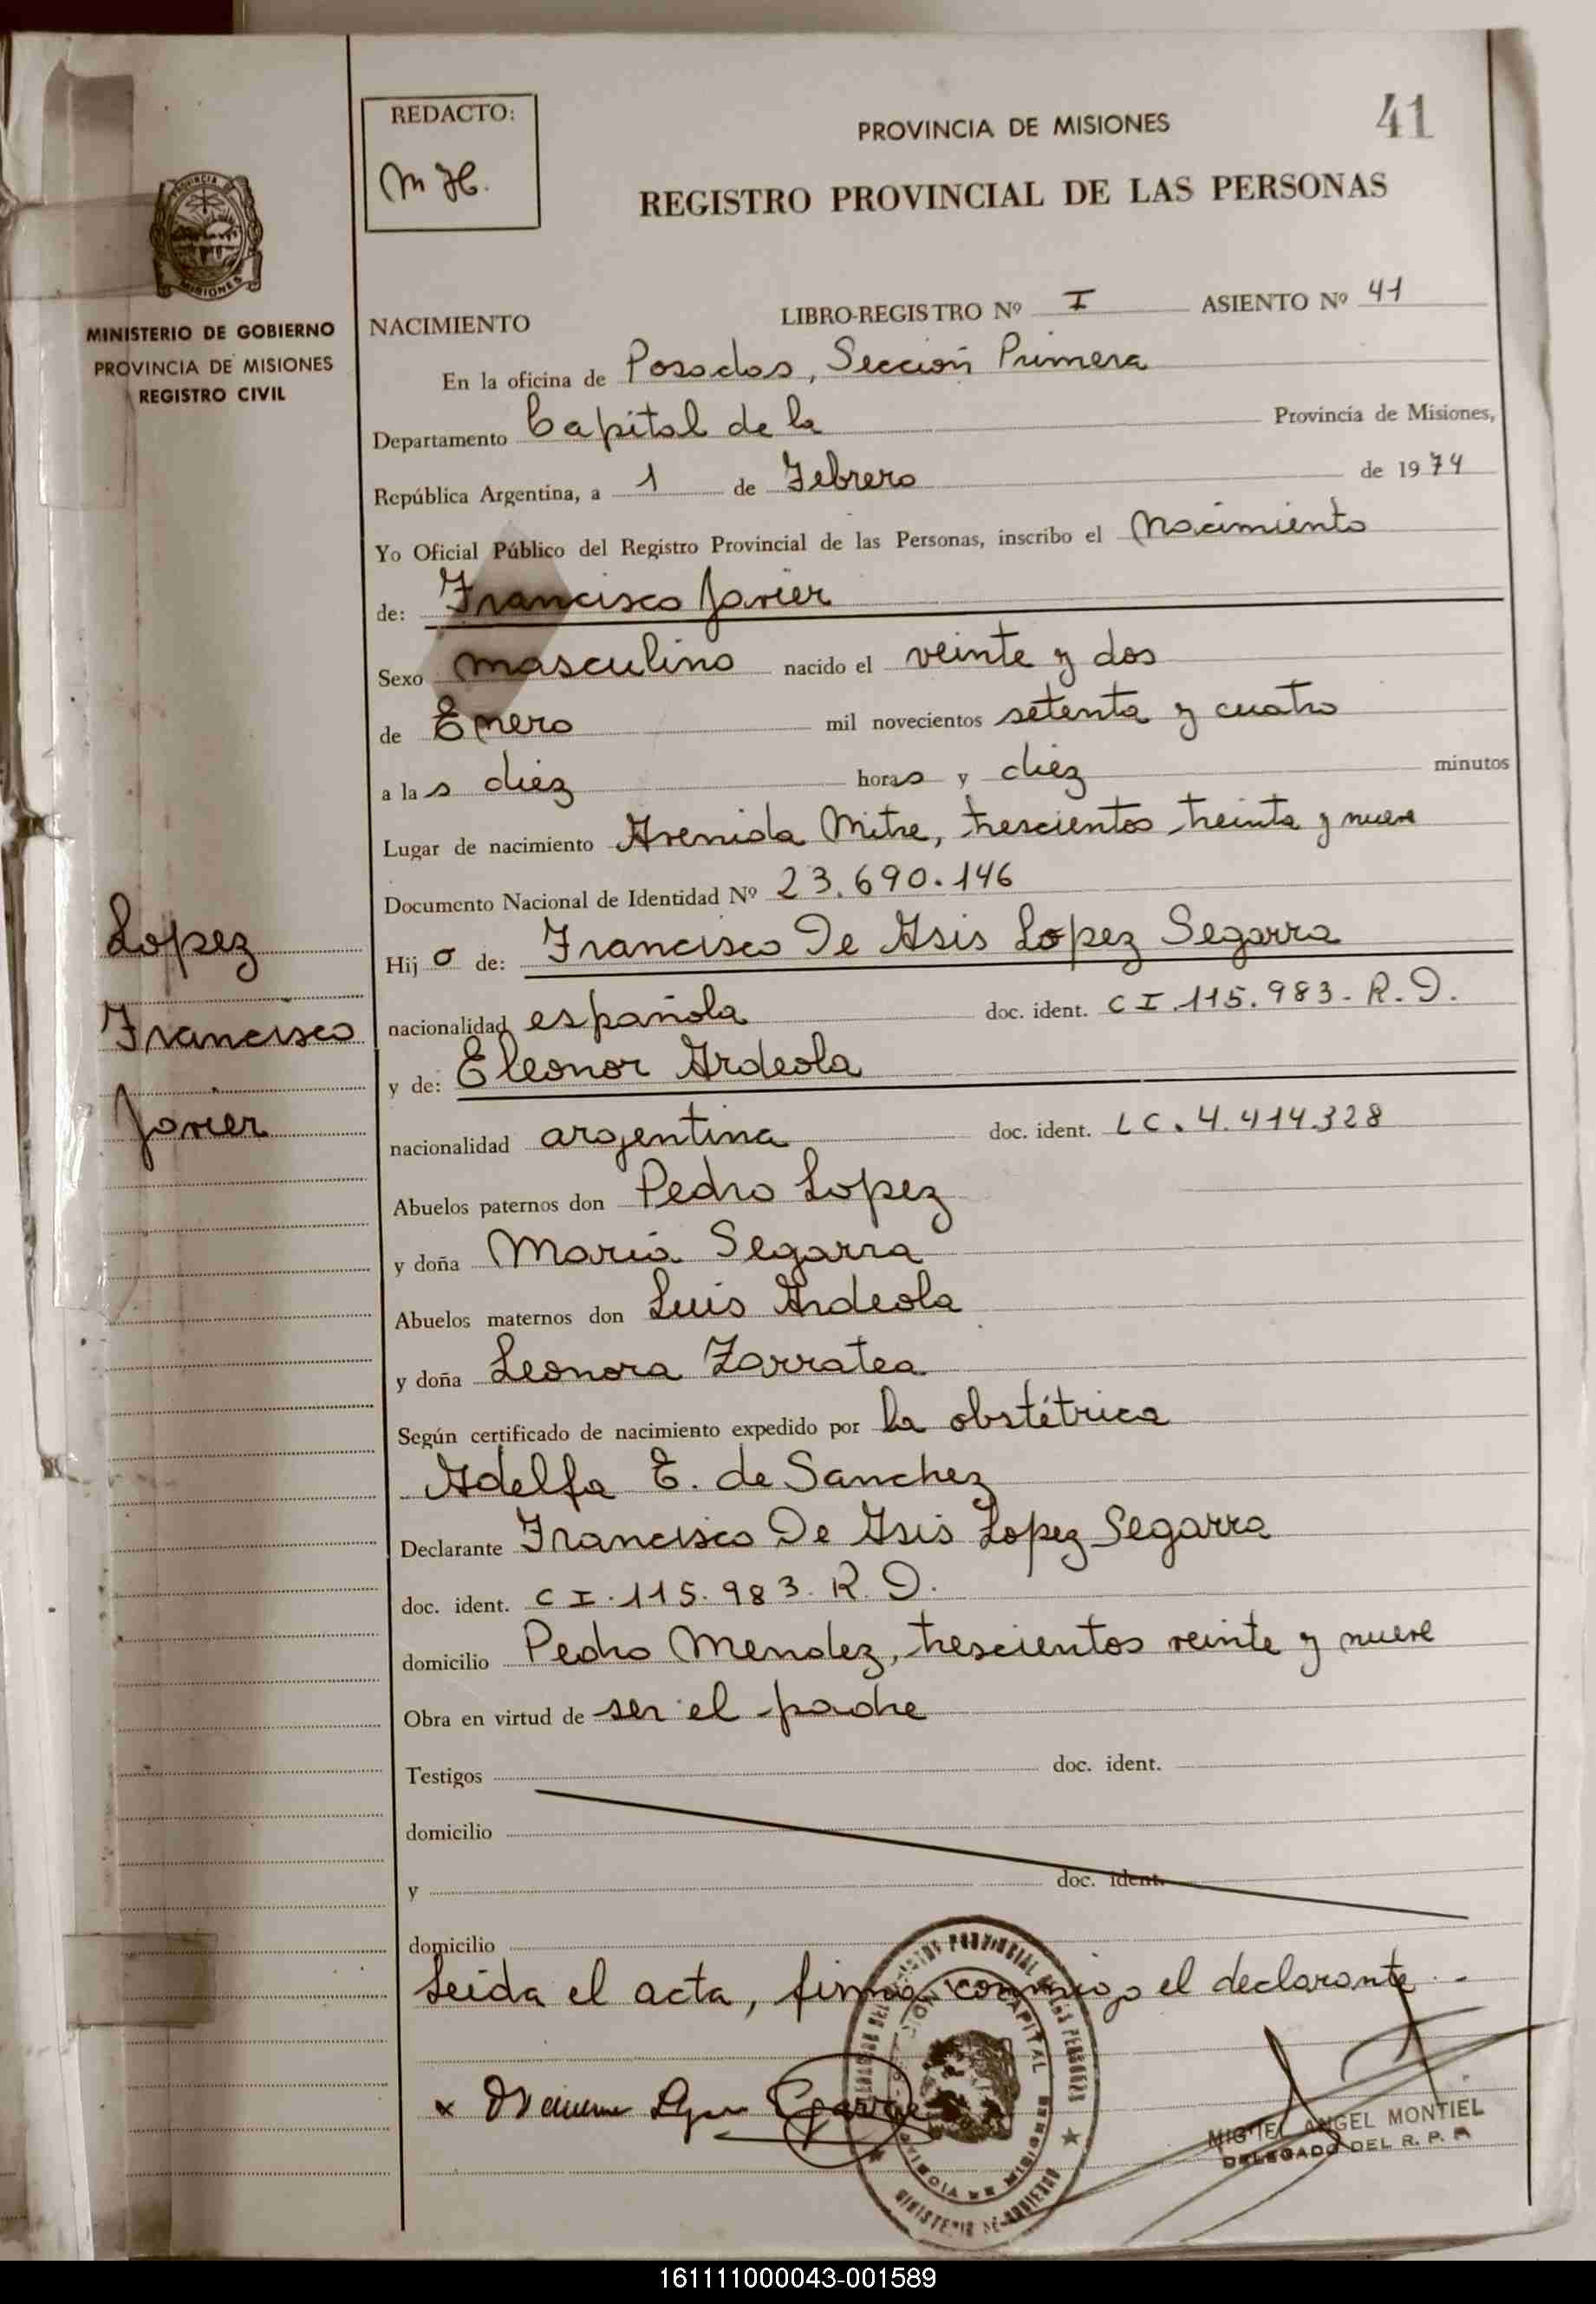 REDACTO:
M H.
PROVINCIA DE MISIONES
41
REGISTRO PROVINCIAL DE LAS PERSONAS
PROVINCIA DE
MISIONES
MINISTERIO DE GOBIERNO
PROVINCIA DE MISIONES
REGISTRO CIVIL
NACIMIENTO LIBRO-REGISTRO Nº I ASIENTO Nº 41
En la oficina de Posadas, Sección Primera
Departamento Capital de la Provincia de Misiones,
República Argentina, a 1 de Febrero de 1974
Yo Oficial Público del Registro Provincial de las Personas, inscribo el Nacimiento
de: Francisco Javier
Sexo masculino nacido el veinte y dos
de Enero mil novecientos setenta y cuatro
a las diez horas y diez minutos
Lugar de nacimiento Avenida Mitre, trescientos treinta y nueve
Documento Nacional de Identidad Nº 23.690.146
Lopez
Francisco
Javier
Hijo de: Francisco De Asis Lopez Segarra
nacionalidad española doc. ident. CI.115.983-R.D.
y de: Eleonor Ardeola
nacionalidad argentina doc. ident. LC.4.414.328
Abuelos paternos don Pedro Lopez
y doña María Segarra
Abuelos maternos don Luis Ardeola
y doña Leonora Zarratea
Según certificado de nacimiento expedido por la obstétrica
Adelfa E. de Sanchez
Declarante Francisco De Asis Lopez Segarra
doc. ident. CI.115.983.R.D.
domicilio Pedro Mendez, trescientos veinte y nueve
Obra en virtud de ser el padre
Testigos doc. ident.
domicilio
y doc. ident.
domicilio
Leída el acta, firma conmigo el declarante.-
MIGUEL ANGEL MONTIEL
DELEGADO DEL R. P. P.
161111000043-001589